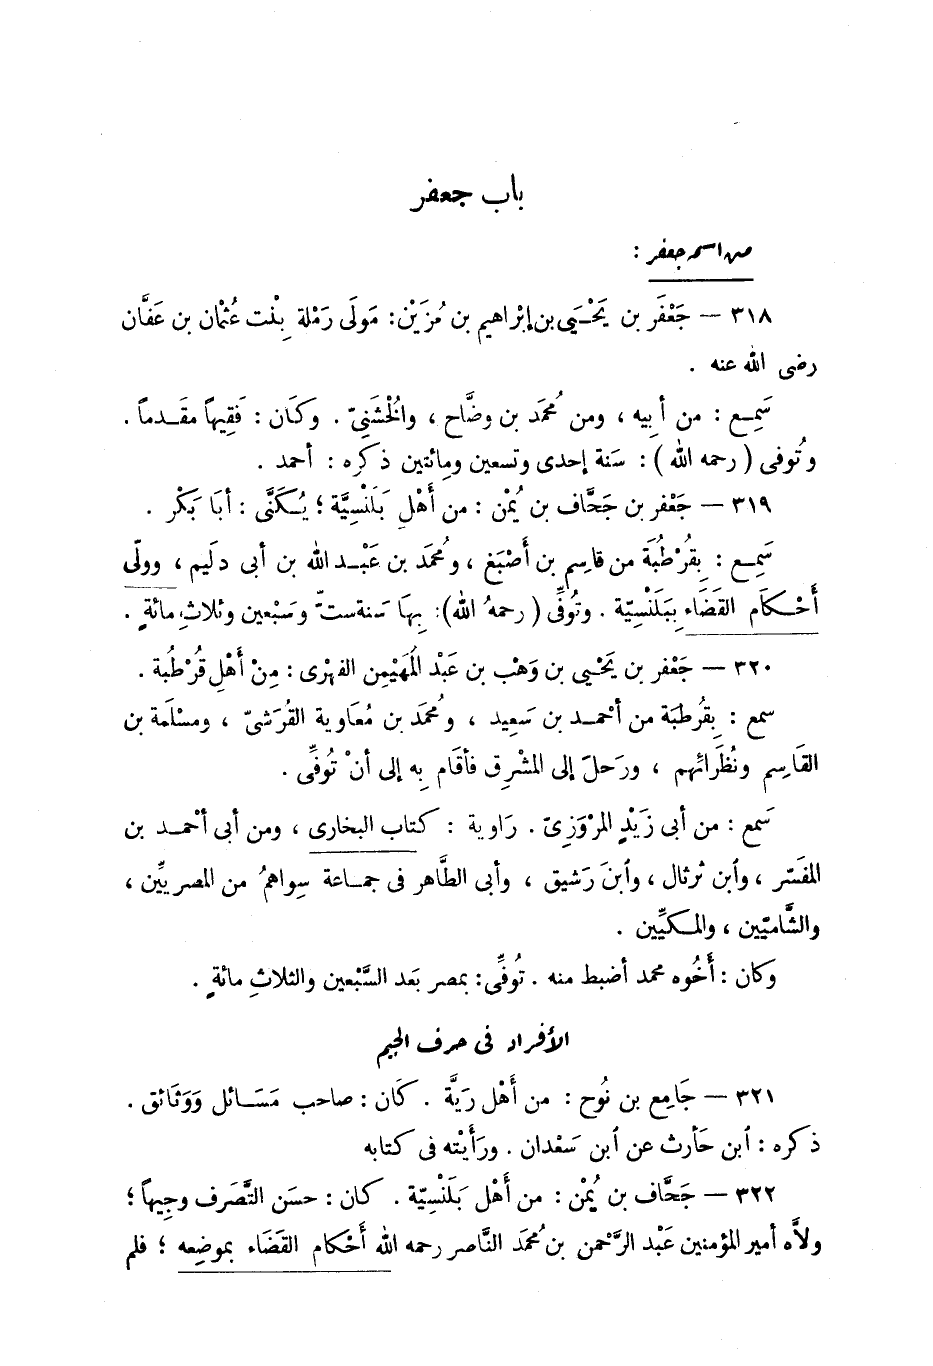 باب جعفر
من اسمه جعفر :
٣١٨ — جَعْفَر بن يَحْـيَى بن إبْراهيم بن مُزَيْن: مَولَى رَمْلة بِنْت عُثمْان بن عَفَّان
رضى الله عنه .
سَمِـع : من أبِيه ، ومن مُحمَّد بن وضَّاح ، والُخْشَنِىّ . وكَان : فَقِيهاً مقَـدماً .
وتُوفى ( رحمه الله ) : سَنة إحدى وتسعين ومِائتين ذكرِه : أحمد .
٣١٩ — جَعْفر بن جَحَّاف بن يُمْن : من أَهْل بَلَنْسِيَّة ؛ يُـكَنَّى : أبَا بَكْر .
سَمِـع : بِقرُطُبَة من قاسِم بن أَصْبَغ ، ومُحمَّد بن عَبْـد الله بن أبى دلَيم ، وولّى
أَحْـكَام القَضَاء بِبَلَنْسِيّة . وتُوفِّى ( رحمهُ الله ): بِهَا سَنة ستّ وسَبْعين وثلاثِ مائةٍ .
٣٢٠ — جَعْفر بن يَحْـيى بن وَهْب بن عَبْد الُمهَيْمِن الفِهْرى : مِنْ أَهْلِ قُرْطُبة .
سمع : بِقرُطبَة من أحْمـد بن سَعِيد ، ومُحمَّد بن مُعَاوية القُرَشىّ ، ومسْلَمة بن
القَاسِم ونُظَرَائهم ، ورَحلَ إلى المشْرِق فأقَام بِه إلى أنْ تُوفِّى .
سَمع : من أبى زَيْدٍ المرْوَزِىّ . رَاوية : كتاب البخارى ، ومن أبى أحْمـد بن
المفَسّر ، وأبن ثرثال ، وأبنَ رَشيق ، وأبى الطَّاهر فى جمـاعة سِواهمُ من المصريِّين ،
والشَّاميّين ، والمـكيِّين .
وكان : أَخُوه محمد أضبط منه . تُوفِّى: بمصر بَعد السَّبْعين والثلاثِ مائةٍ .
الأفراد فى حرف الجيم
٣٢١ — جَامِع بن نُوح : من أَهْل رَيَّة . كَان : صاحب مَسَـائل وَوَثَائق .
ذكره : أبن حَأرث عن أبن سَعْدان . ورَأَيْته فى كتابه
٣٢٢ — جَحَّاف بن يُمْن : من أَهْل بَلَنْسِيّة . كان : حسَن التَّصَرف وجِيهاً ؛
ولاَّه أمير المؤمنين عَبْد الرَّحْمن بن مُحمَّد النَّاصر رحمه الله أَحْكام القَضَاء بموضِعه ؛ فلم